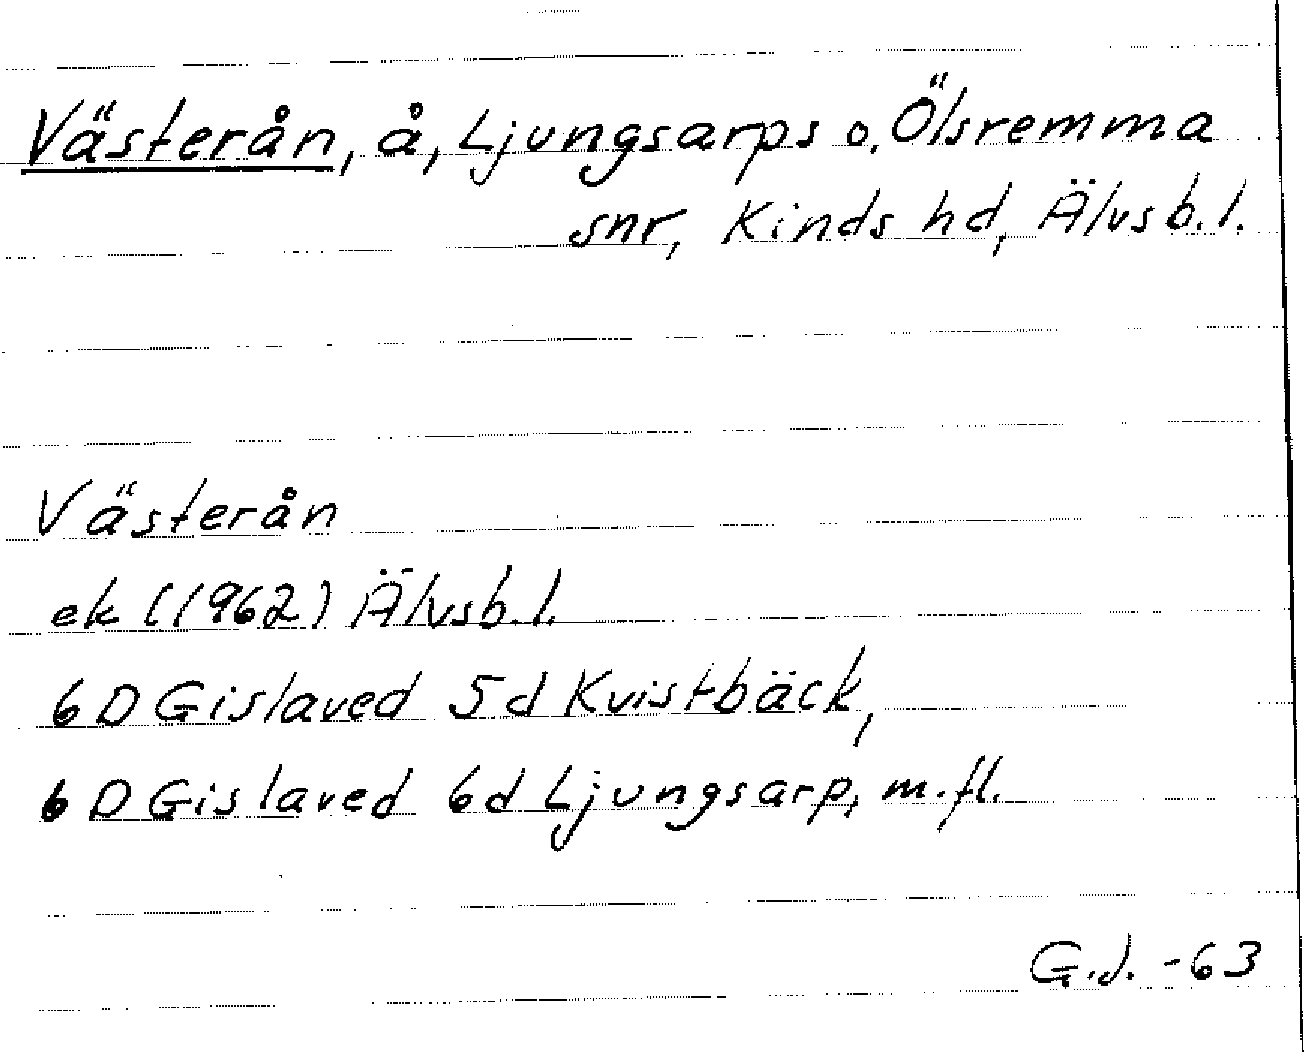 Västerån, å, Ljungsarps o. Ölsremma
snr, Kinds hd, Älvsb.l.
Västerån
ek (1962) Älvsb.l.
6D Gislaved 5d Kvistbäck,
6D Gislaved 6d Ljungsarp, m.fl.
G.J. -63